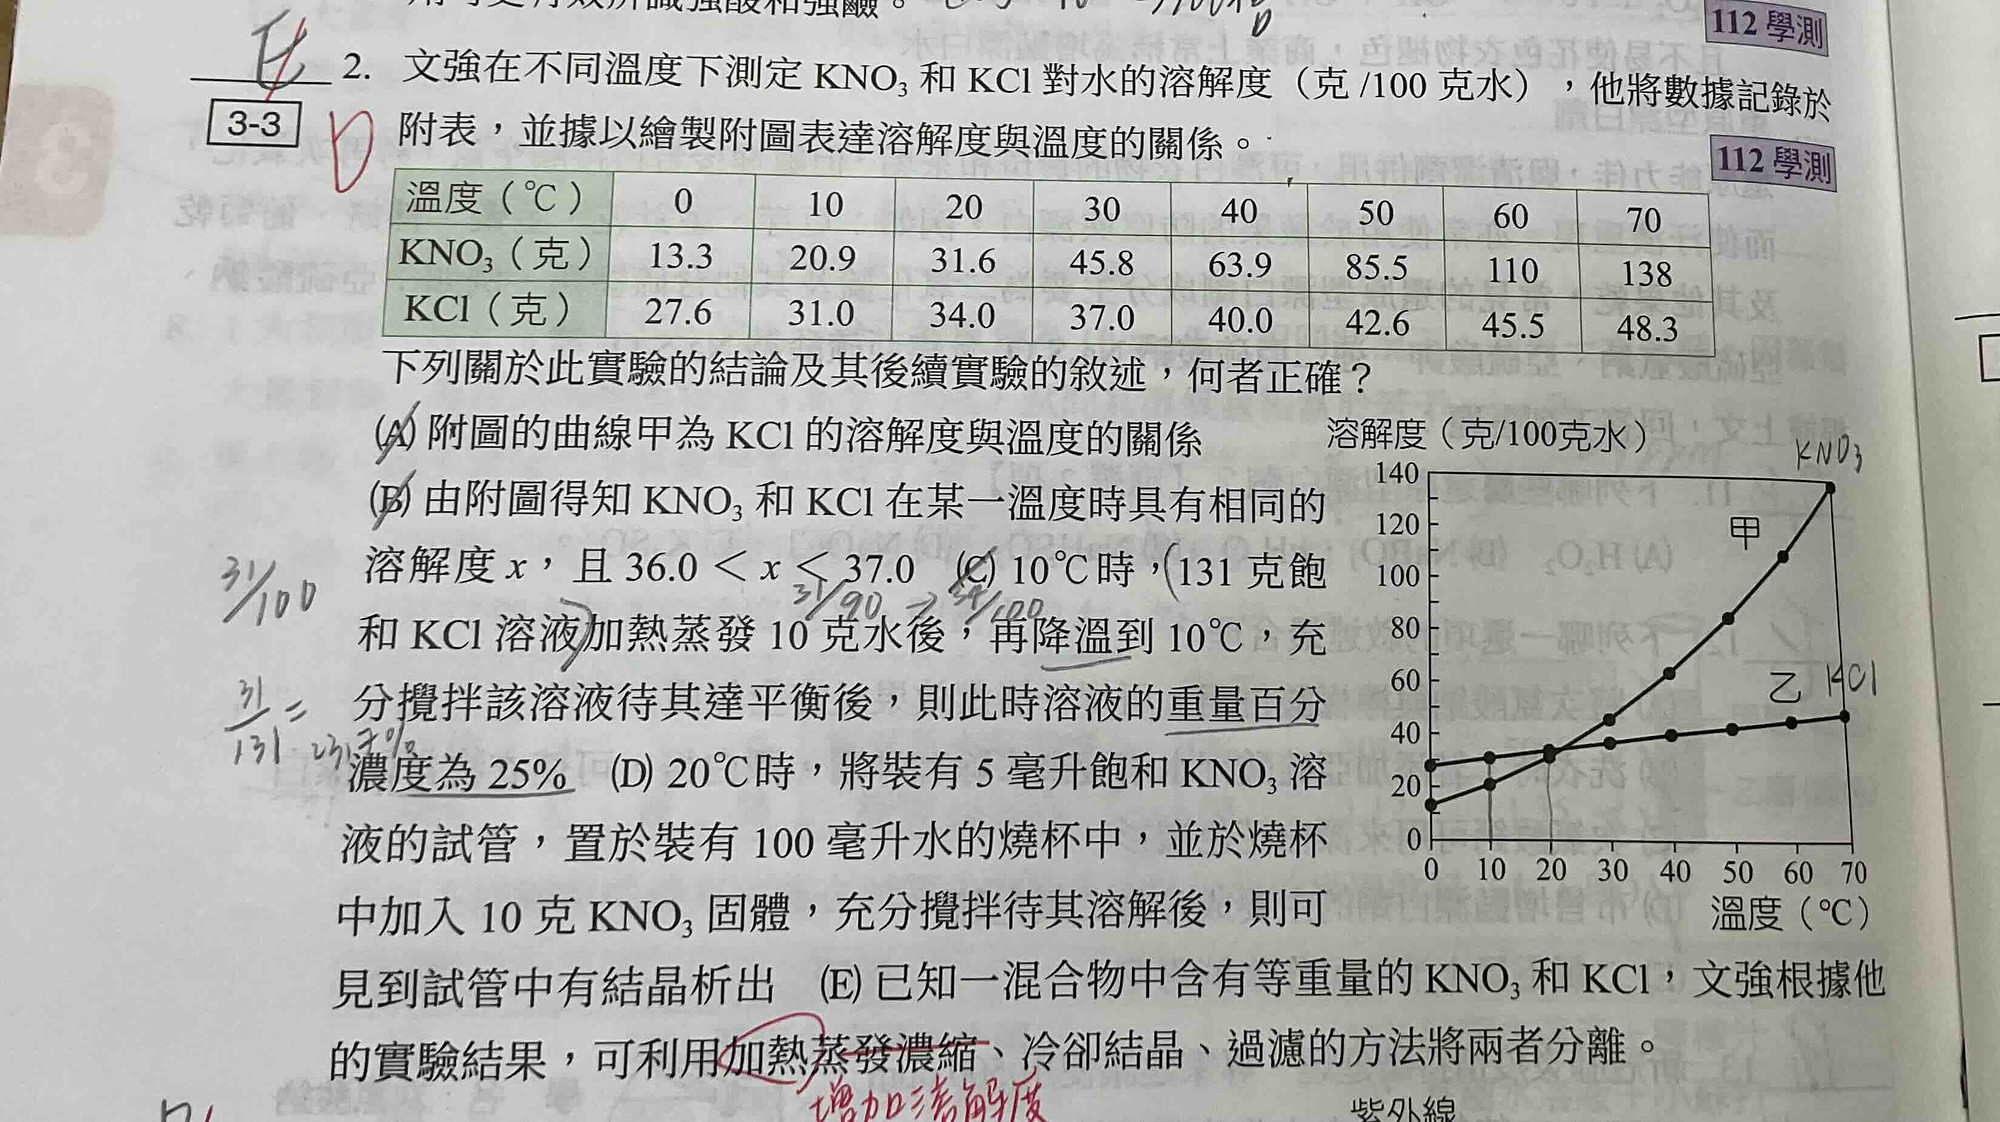 用可更有效辨識強酸和強鹼。
112 學測
E 2. 文強在不同溫度下測定 KNO₃ 和 KCl 對水的溶解度（克 /100 克水），他將數據記錄於
3-3 D 附表，並據以繪製附圖表達溶解度與溫度的關係。
112 學測
溫度（℃） 0 10 20 30 40 50 60 70
KNO₃（克） 13.3 20.9 31.6 45.8 63.9 85.5 110 138
KCl（克） 27.6 31.0 34.0 37.0 40.0 42.6 45.5 48.3
下列關於此實驗的結論及其後續實驗的敘述，何者正確？
(A) 附圖的曲線甲為 KCl 的溶解度與溫度的關係
(B) 由附圖得知 KNO₃ 和 KCl 在某一溫度時具有相同的
溶解度 x，且 36.0 < x < 37.0 (C) 10℃時，131 克飽
31/90 → 34/100
31/100
和 KCl 溶液加熱蒸發 10 克水後，再降溫到 10℃，充
分攪拌該溶液待其達平衡後，則此時溶液的重量百分
31/131 =
濃度為 25% (D) 20℃時，將裝有 5 毫升飽和 KNO₃ 溶
液的試管，置於裝有 100 毫升水的燒杯中，並於燒杯
中加入 10 克 KNO₃ 固體，充分攪拌待其溶解後，則可
見到試管中有結晶析出 (E) 已知一混合物中含有等重量的 KNO₃ 和 KCl，文強根據他
的實驗結果，可利用加熱蒸發濃縮、冷卻結晶、過濾的方法將兩者分離。
增加溶解度
溶解度（克/100克水）
KNO₃
140
120
100
80
60
40
20
0
甲
乙 KCl
0 10 20 30 40 50 60 70
溫度（℃）
紫外線